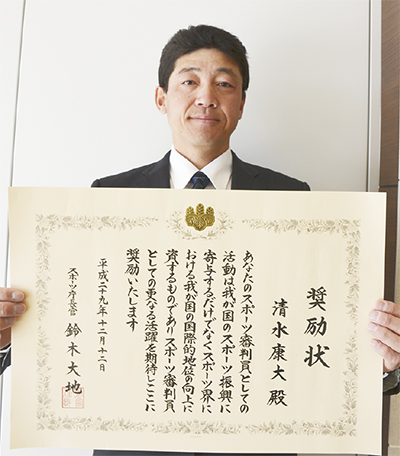 奨励状
清水康大 殿
あなたのスポーツ審判員としての
活動は我が国のスポーツ振興に
寄与するだけでなくスポーツ界に
おける我が国の国際的地位の向上に
資するものでありスポーツ審判員
としての更なる活躍を期待しここに
奨励いたします
平成二十九年十二月十二日
スポーツ庁長官 鈴木大地